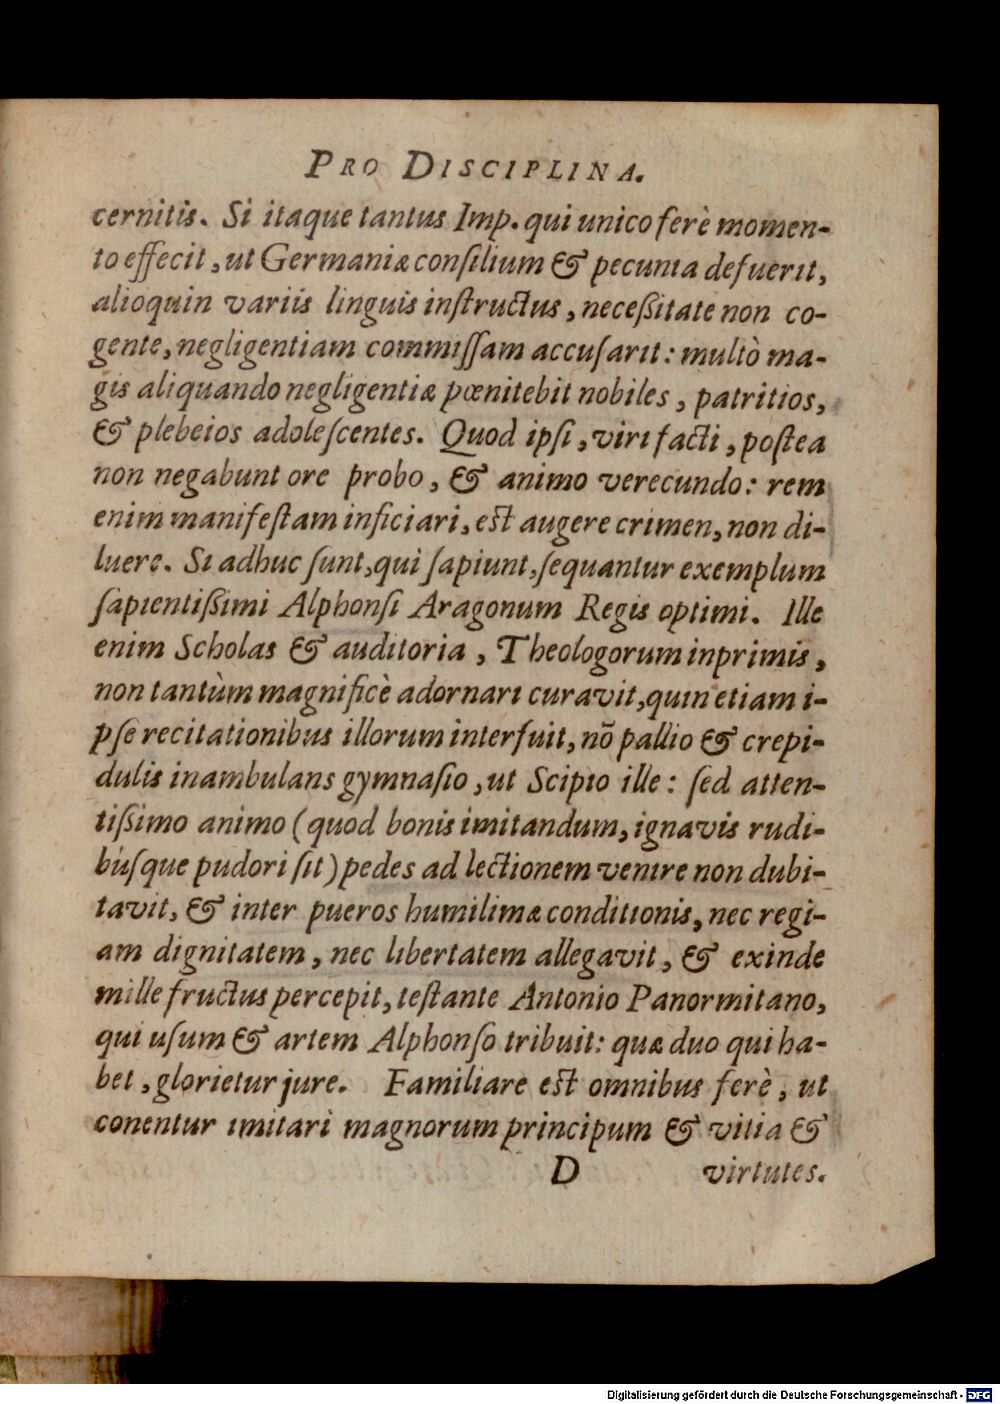 PRO DISCIPLINA.
cernitis. Si itaque tantus Imp. qui unico ferè momen-
to effecit, ut Germaniæ consilium & pecunia defuerit,
alioquin variis linguis instructus, neceßitate non co-
gente, negligentiam commissam accusarit: multò ma-
gis aliquando negligentiæ pœnitebit nobiles, patritios,
& plebeios adolescentes. Quod ipsi, viri facti, postea
non negabunt ore probo, & animo verecundo: rem
enim manifestam inficiari, est augere crimen, non di-
luere. Si adhuc sunt, qui sapiunt, sequantur exemplum
sapientißimi Alphonsi Aragonum Regis optimi. Ille
enim Scholas & auditoria, Theologorum inprimis,
non tantùm magnificè adornari curavit, quin etiam i-
pse recitationibus illorum interfuit, nõ pallio & crepi-
dulis inambulans gymnasio, ut Scipio ille: sed atten-
tißimo animo (quod bonis imitandum, ignavis rudi-
busque pudori sit) pedes ad lectionem venire non dubi-
tavit, & inter pueros humilimæ conditionis, nec regi-
am dignitatem, nec libertatem allegavit, & exinde
mille fructus percepit, testante Antonio Panormitano,
qui usum & artem Alphonso tribuit: quæ duo qui ha-
bet, glorietur jure. Familiare est omnibus ferè, ut
conentur imitari magnorum principum & vitia &
D virtutes.
Digitalisierung gefördert durch die Deutsche Forschungsgemeinschaft - DFG